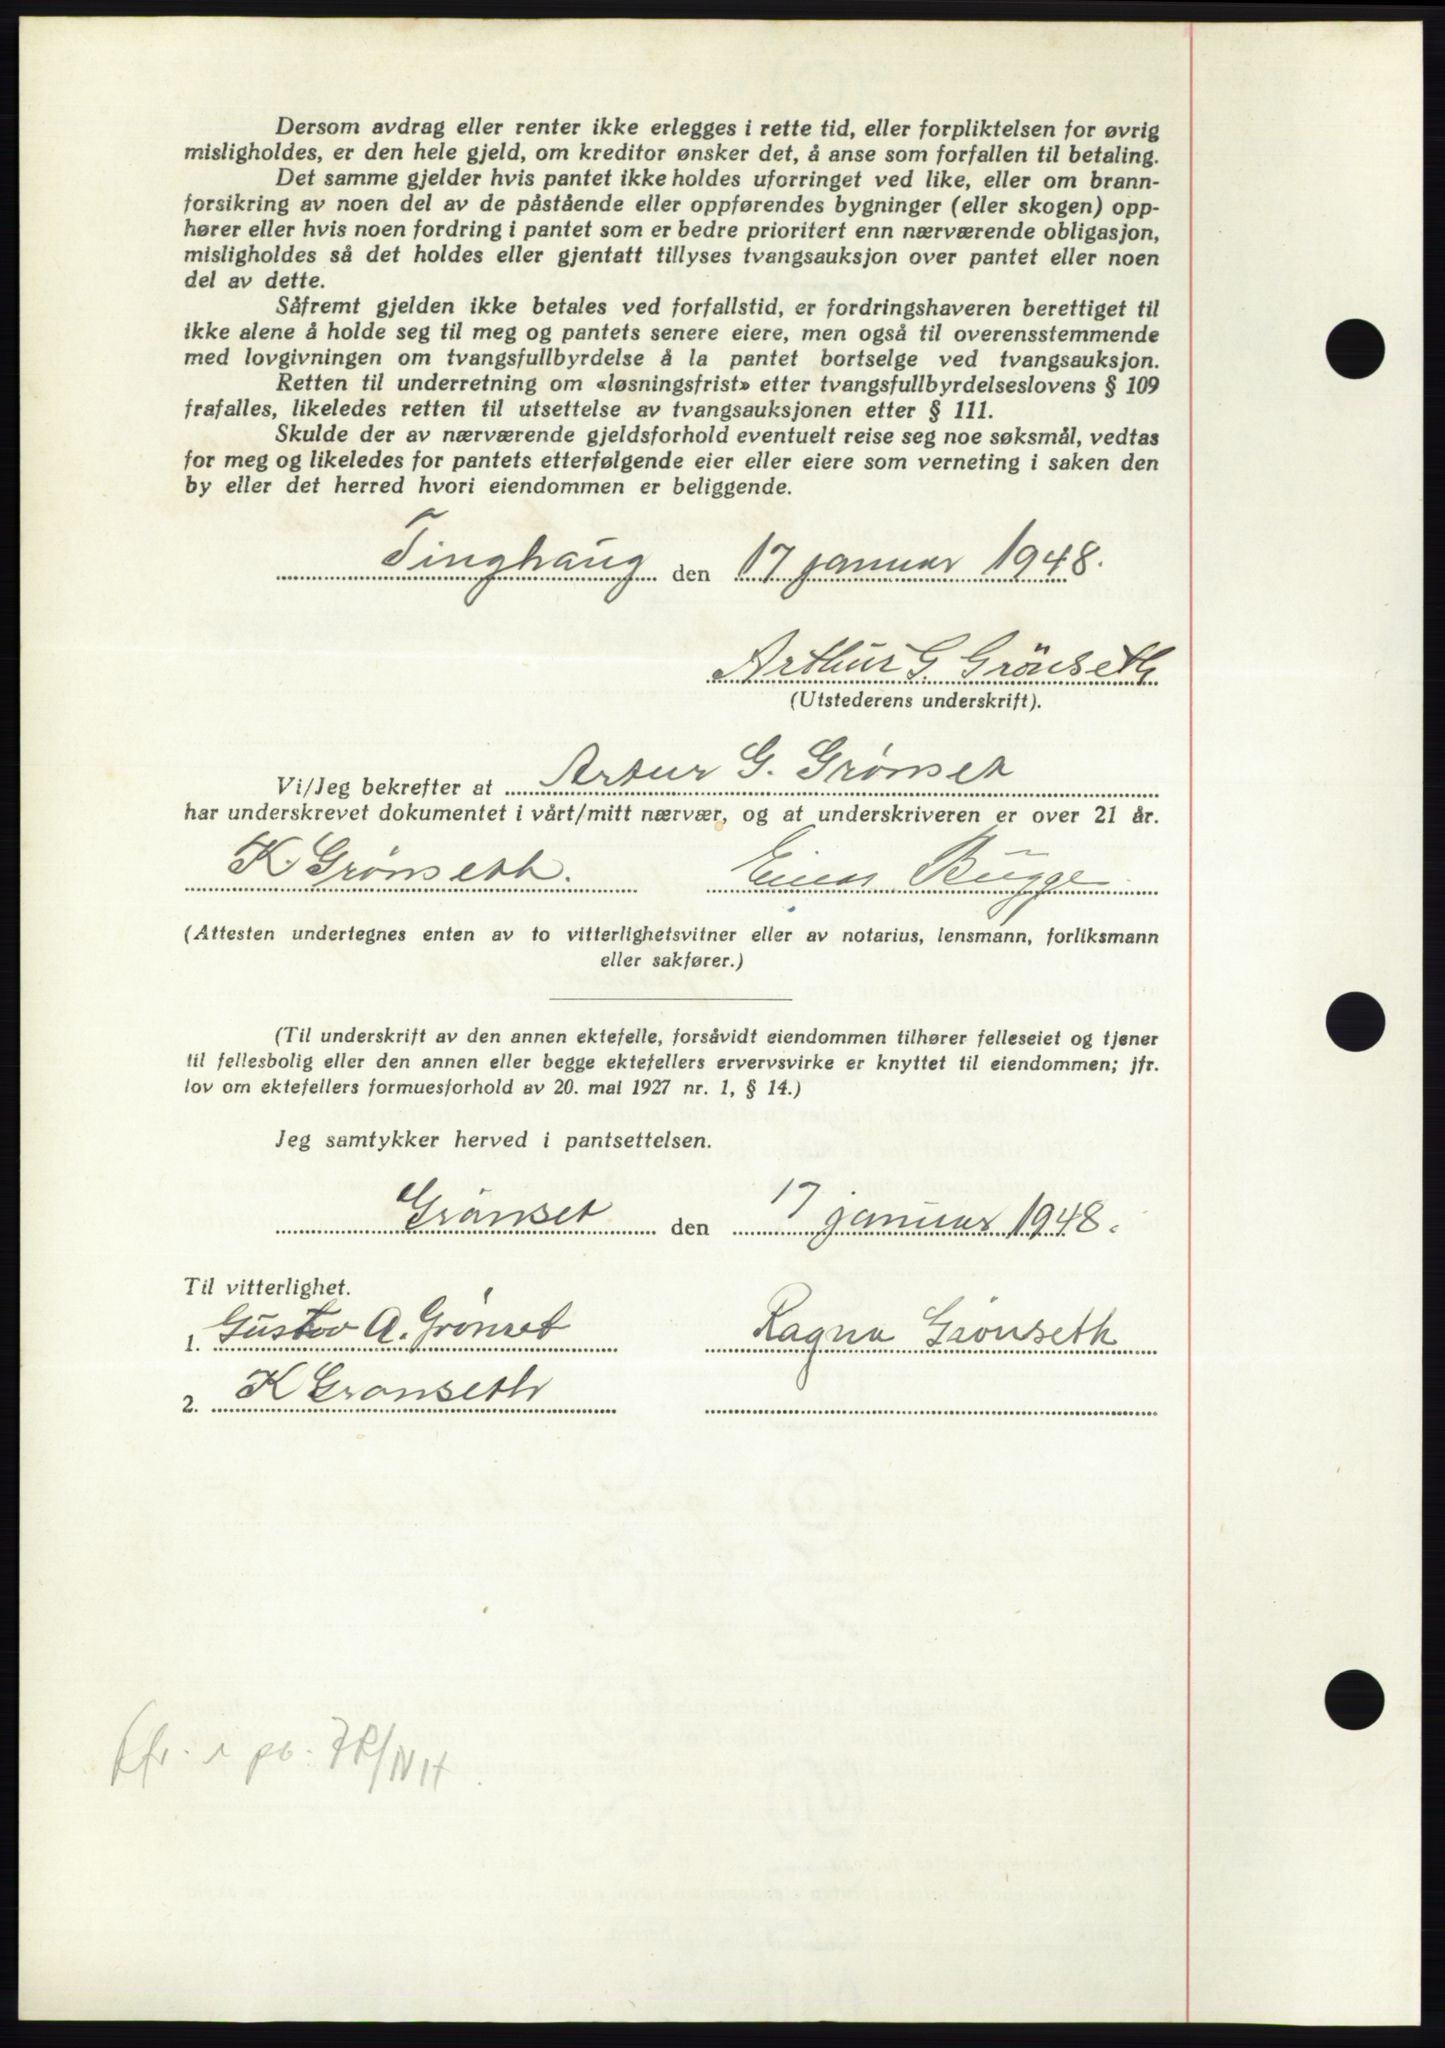 Dersom avdrag eller renter ikke erlegges i rette tid, eller forpliktelsen for øvrig
misligholdes, er den hele gjeld, om kreditor ønsker det, å anse som forfallen til betaling.
Det samme gjelder hvis pantet ikke holdes uforringet ved like, eller om brann-
forsikring av noen del av de påstående eller oppførendes bygninger (eller skogen) opp-
hører eller hvis noen fordring i pantet som er bedre prioritert enn nærværende obligasjon,
misligholdes så det holdes eller gjentatt tillyses tvangsauksjon over pantet eller noen
del av dette.
Såfremt gjelden ikke betales ved forfallstid, er fordringshaveren berettiget til
ikke alene å holde seg til meg og pantets senere eiere, men også til overensstemmende
med lovgivningen om tvangsfullbyrdelse å la pantet bortselge ved tvangsauksjon.
Retten til underretning om «løsningsfrist» etter tvangsfullbyrdelseslovens § 109
frafalles, likeledes retten til utsettelse av tvangsauksjonen etter § 111.
Skulde der av nærværende gjeldsforhold eventuelt reise seg noe søksmål, vedtas
for meg og likeledes for pantets etterfølgende eier eller eiere som verneting i saken den
by eller det herred hvori eiendommen er beliggende.
Tinghaug den 17 januar 1948.
Arthur G. Grönseth
(Utstederens underskrift).
Vi/Jeg bekrefter at Artur G. Grønset
har underskrevet dokumentet i vårt/mitt nærvær, og at underskriveren er over 21 år.
K. Grønseth. Einar Bugge
(Attesten undertegnes enten av to vitterlighetsvitner eller av notarius, lensmann, forliksmann
eller sakfører.)
(Til underskrift av den annen ektefelle, forsåvidt eiendommen tilhører felleseiet og tjener
til fellesbolig eller den annen eller begge ektefellers ervervsvirke er knyttet til eiendommen; jfr.
lov om ektefellers formuesforhold av 20. mai 1927 nr. 1, § 14.)
Jeg samtykker herved i pantsettelsen.
Grönset den 17 januar 1948.
Til vitterlighet.
1. Gustav A. Grönset Ragna Grönseth
2. K Gronseth